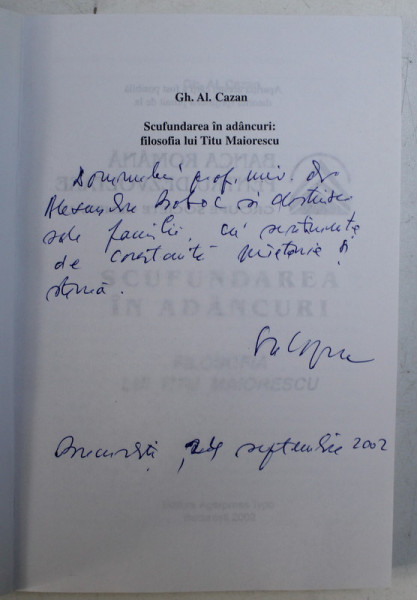 Gh. Al. Cazan
Scufundarea în adâncuri:
filosofia lui Titu Maiorescu
Domnului prof. univ. dr.
Alexandru Boboc și distinsei
sale familii, cu sentimente
de constantă prietenie și
stimă.
București, 24 septembrie 2002
SCUFUNDAREA
ÎN ADÂNCURI
FILOSOFIA
LUI TITU MAIORESCU